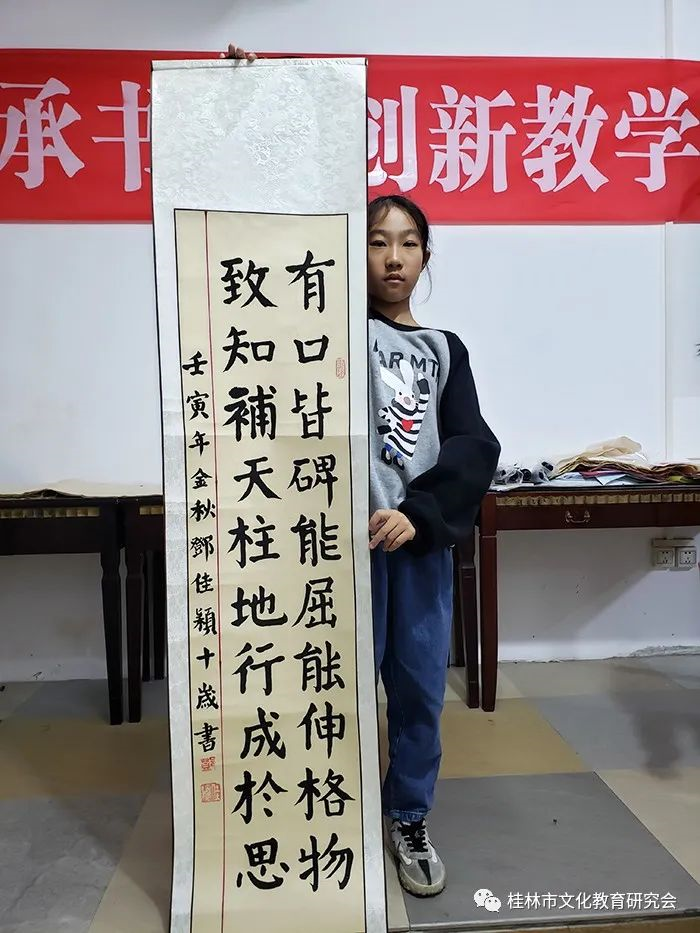 承书 创新教学
有口皆碑能屈能伸格物
致知補天柱地行成於思
壬寅年金秋鄧佳穎十歲書
ARMT
桂林市文化教育研究会